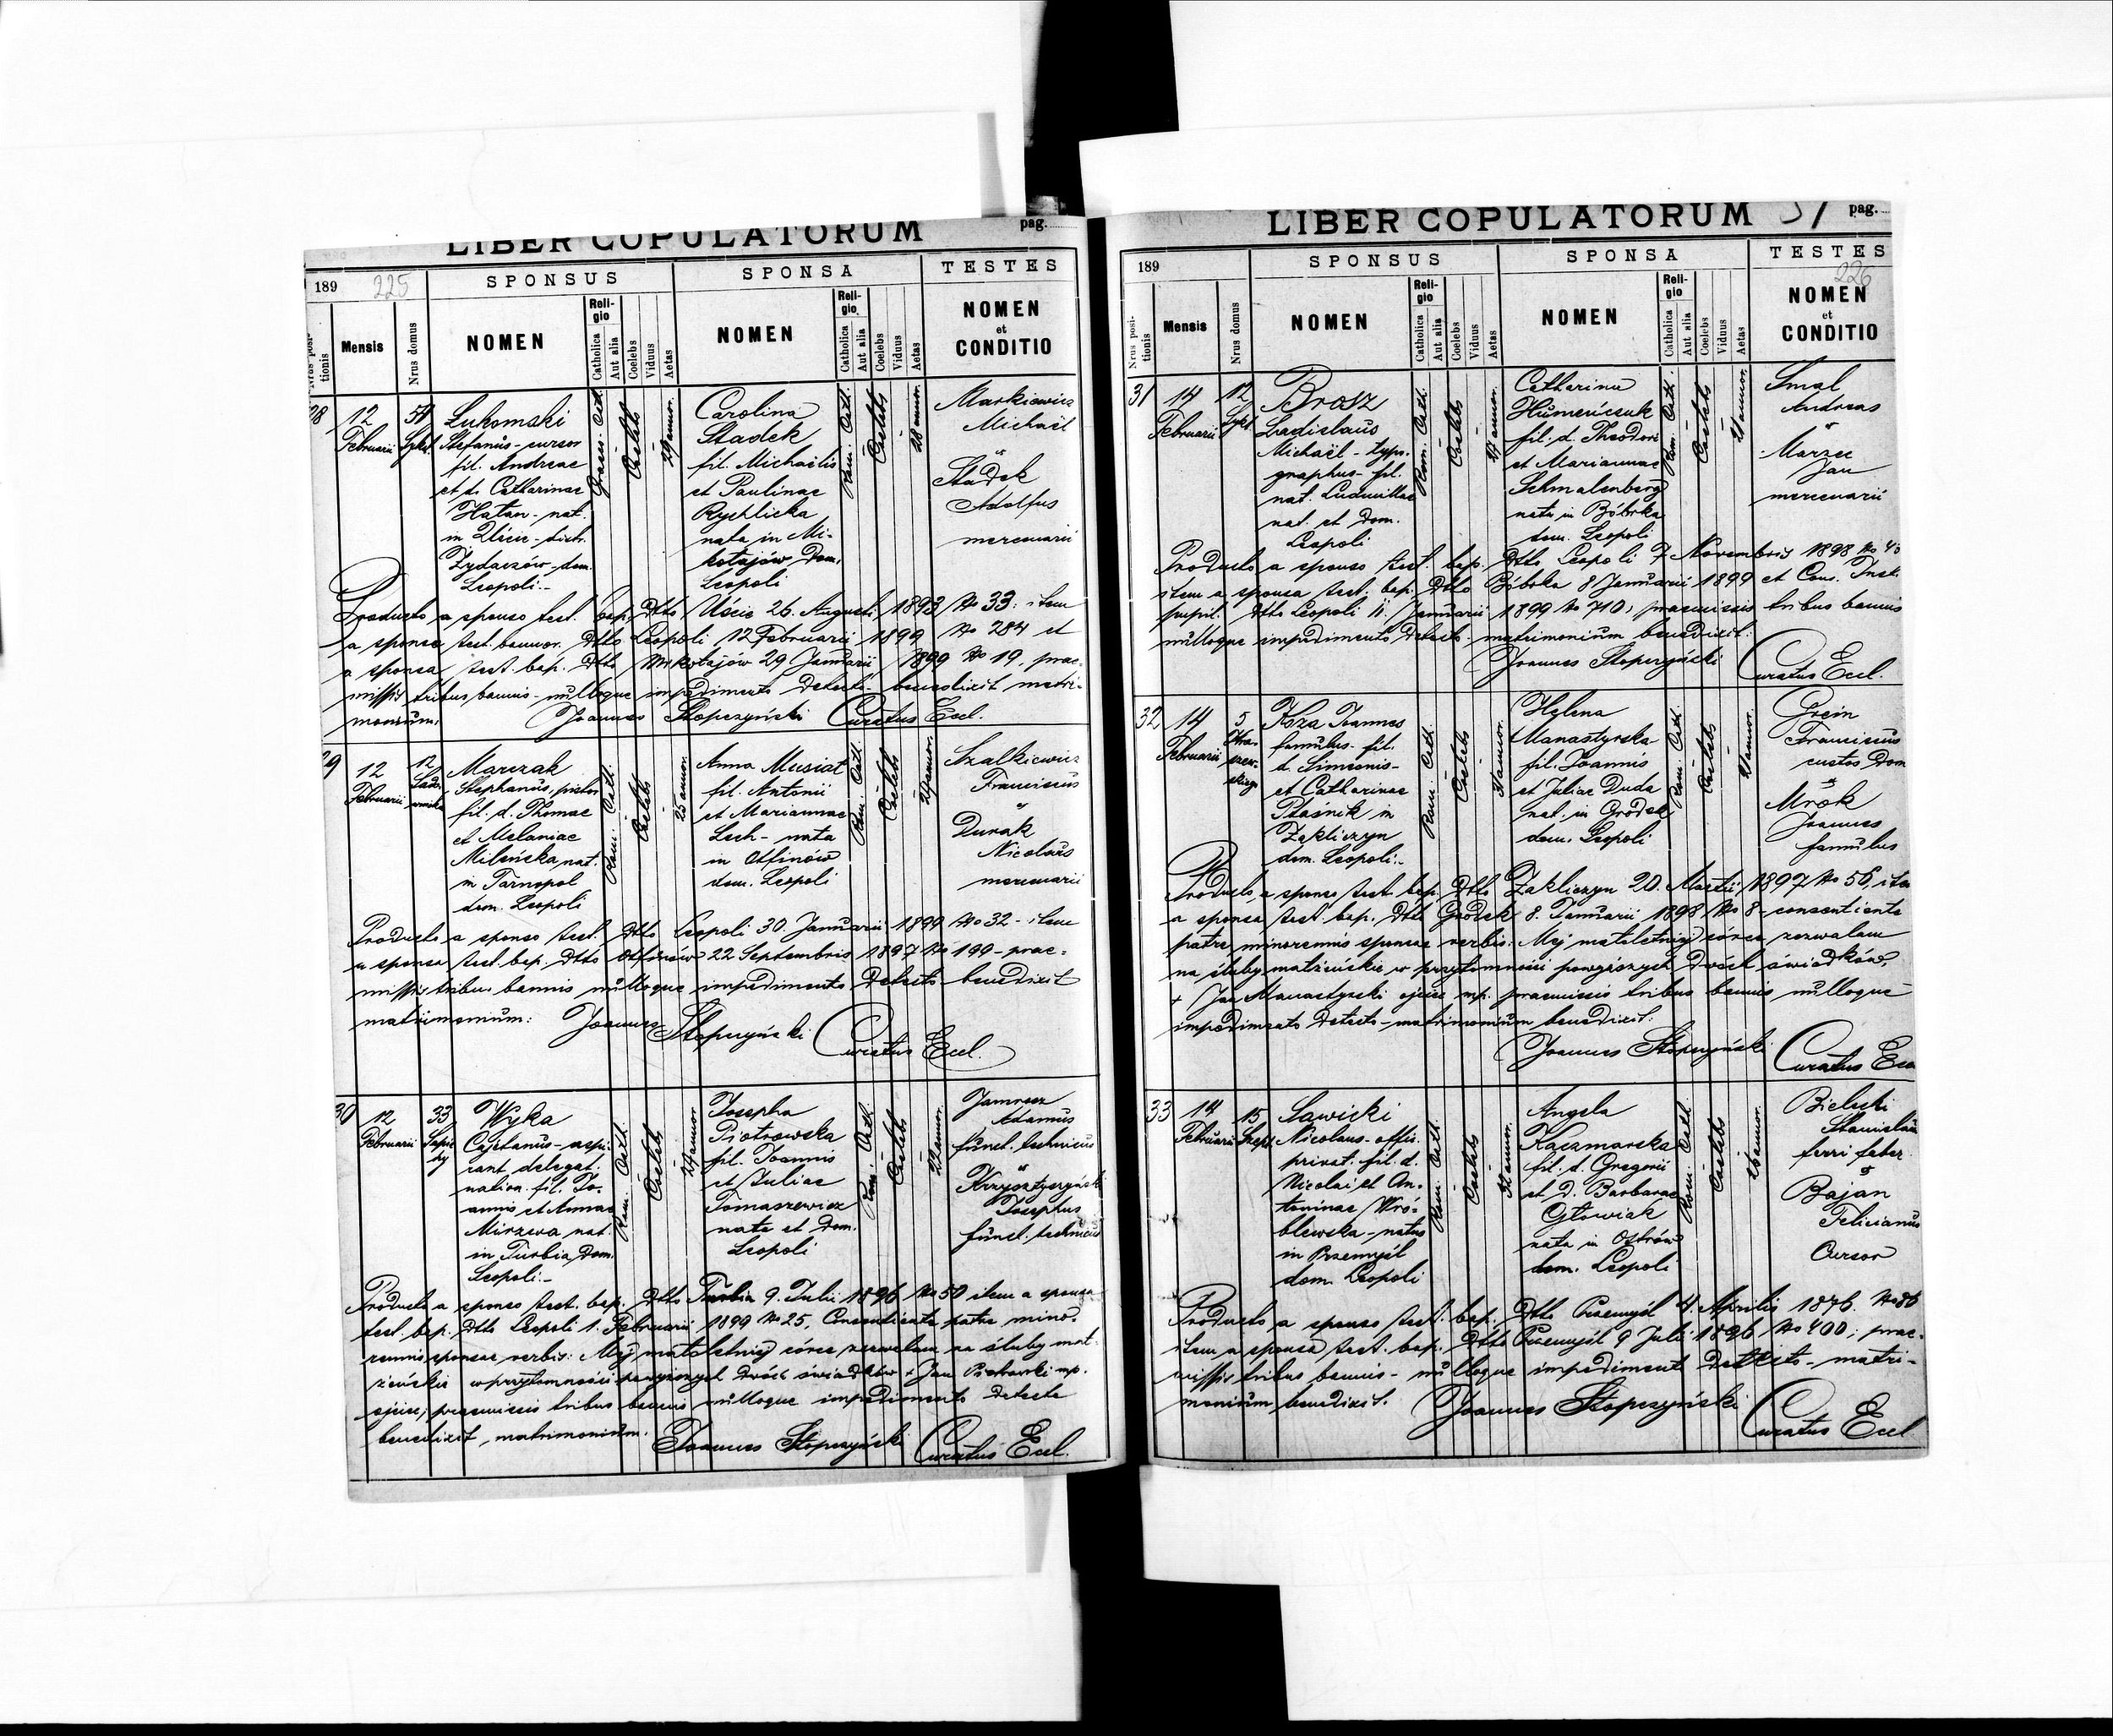 LIBER COPULATORUM
pag.
189
225
SPONSUS
SPONSA
TESTES
Nrus posi-
tionis
Mensis
Nrus domus
NOMEN
Religio
Catholica
Aut alia
Coelebs
Viduus
Aetas
NOMEN
Religio
Catholica
Aut alia
Coelebs
Viduus
Aetas
NOMEN
et
CONDITIO
28
12
Februarii
Łukomski
Stefanus - cursor
fil. Andreae
et d. Catharinae
Hatan - nat.
in - distr.
Żydaczów - dom.
Leopoli.-
Coelebs
29 annor.
Carolina
Sladek
fil. Michaëlis
et Paulinae
Rychlicka
nata in Mi-
kołajów, Dom.
Leopoli
Rom. Cath.
Coelebs
28 annor.
Markiewicz
Michaël
Sladek
Adolfus
mercenarii
Producto a sponso test. bap. Dtto Uście 26. Augusti 1893 No 33: item
a sponso test. bannor. Dtto Leopoli 12 Februarii 1899 No 284 et
a sponsa test. bap. Dtto Mikołajów 29 Januarii 1899 No 19, prae-
missis tribus bannis - nulloque impedimento Detecto - benedixit matri-
monium.
Joannes Stopczyński Curatus Eccl.
29
12
Februarii
12
Marczak
Stephanus, pistor
fil. d. Thomae
et Melaniae
Milinska nat.
in Tarnopol
dom. Leopoli
Rom. Cath.
Coelebs
25 annor.
Anna Musiał
fil. Antonii
et Mariannae
Lech - nata
in Otfinów
dom. Leopoli
Rom. Cath.
Coelebs
24 annor.
Szalkiewicz
Franciscus
Durak
Nicolaus
mercenarii
Producto a sponso test. Dtto Leopoli 30. Januarii 1899 No 32 - item
a sponsa test. bap. Dtto Otfinów 22 Septembris 1897 No 199 - prae-
missis tribus bannis nulloque impedimento Detecto - benedixit
matrimonium:
Joannes Stopczyński Curatus Eccl.
30
12
Februarii
33
Wyka
Cajetanus - aspi-
rant delegat.
nation. fil. Jo-
annis et Annae
Mirzwa nat.
in Turbia, Dom.
Leopoli.-
Rom. Cath.
Coelebs
27 annor.
Josepha
Piotrowska
fil. Joannis
et Juliae
Tomaszewicz
nata et Dom.
Leopoli
Rom. Cath.
Coelebs
22 annor.
Jamrosz
Adamus
funct. technicus
Krzysztyczyński
Josephus
funct. technicus
Producto a sponso test. bap. Dtto Turbia 9. Julii 1896 No 50 item a sponsa
test. bap. Dtto Leopoli 1. Februarii 1899 No 25, Consentiente patre mino-
rennis sponsae verbis: Mej małoletniej córce zezwalam na śluby mał-
żeńskie w przytomności powyższych dwóch świadków + Jan Piotrowski mp.
ojciec, praemissis tribus bannis nulloque impedimento Detecto
benedixit matrimonium.
Joannes Stopczyński Curatus Eccl.
LIBER COPULATORUM
pag.
189
226
SPONSUS
SPONSA
TESTES
Nrus posi-
tionis
Mensis
Nrus domus
NOMEN
Religio
Catholica
Aut alia
Coelebs
Viduus
Aetas
NOMEN
Religio
Catholica
Aut alia
Coelebs
Viduus
Aetas
NOMEN
et
CONDITIO
31
14
Februarii
12
Brosz
Ladislaus
Michaël - typo-
graphus - fil.
nat. Ludmillae
nat. et Dom.
Leopoli
Rom. Cath.
Coelebs
Catharina
Humeńczuk
fil. d. Theodori
et Mariannae
Schmalenberg
nata in Bóbrka
dom. Leopoli
Rom. Cath.
Coelebs
21 annor.
Smal
Andreas
Marzec
Jan
mercenarii
Producto a sponso test. bap. Dtto Leopoli 7 Novembris 1898
item a sponsa test. bap. Dtto Bóbrka 8 Januarii 1899 et Cons. Inst.
pupil. Dtto Leopoli 11. Januarii 1899 No 710, praemissis tribus bannis
nulloque impedimento Detecto - matrimonium benedixit.
Joannes Stopczyński Curatus Eccl.
32
14
Februarii
5
Koza Joannes
famulus - fil.
d. Simeonis -
et Catharinae
Ptaśnik in
Zakliczyn
dom. Leopoli.-
Rom. Cath.
Coelebs
Helena
Manastyrska
fil. Joannis
et Juliae Duda
nat. in Gródek
dom. Leopoli
Rom. Cath.
Coelebs
21 annor.
Grein
Franciscus
custos Dom
Mrok
Joannes
famulus
Producto a sponso test. bap. Dtto Zakliczyn 20. Martii 1897 No 56, item
a sponsa test. bap. Dtto Gródek 8. Januarii 1898 No 8 - consentiente
patre minorennis sponsae verbis: Mej małoletniej córce zezwalam
na śluby małżeńskie w przytomności powyższych dwóch świadków,
+ Jan Manastyrski ojciec mp. praemissis tribus bannis nulloque
impedimento Detecto - matrimonium benedixit.
Joannes Stopczyński Curatus Ecc
33
14
Februarii
15
Szept.
Sawicki
Nicolaus - offic.
privat. fil. d.
Nicolai et An-
toninae Wró-
blewska - natus
in Przemyśl
dom. Leopoli
Rom. Cath.
Coelebs
32 annor.
Angela
Kaczmarska
fil. d. Gregorii
et D. Barbarae
Głowiak
nata in Ostrów
dom. Leopoli
Rom. Cath.
Coelebs
26 annor.
Bielecki
Stanislaus
ferri faber
Bajan
Felicianus
Cursor
Producto a sponso test. bap. Dtto Przemyśl 4. Aprilis 1876. No 86
item a sponsa test. bap. Dtto Przemyśl 9 Julii 1896 No 400; prae-
missis tribus bannis - nulloque impediment Detecto - matri-
monium benedixit.
Joannes Stopczyński Curatus Eccl